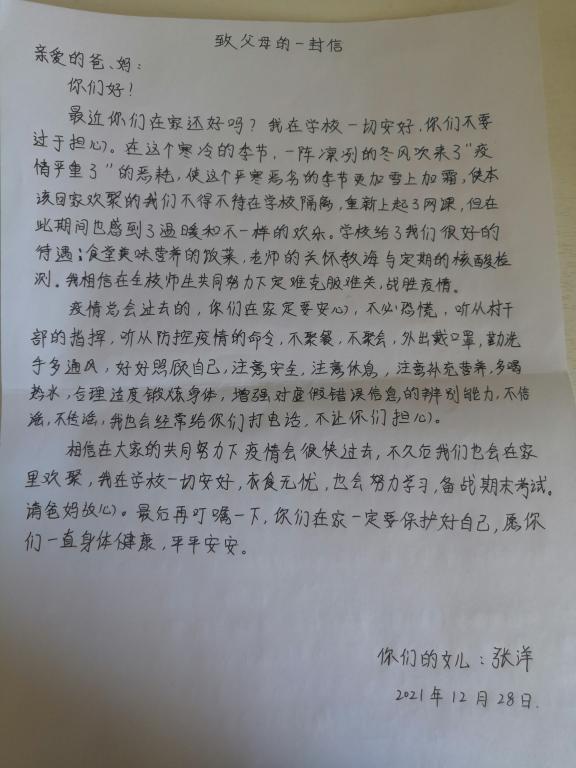 致父母的一封信
亲爱的爸、妈：
你们好！
最近你们在家还好吗？我在学校一切安好，你们不要
过于担心。在这个寒冷的季节，一阵凛冽的冬风吹来了“疫
情严重了”的恶耗，使这个严寒恶劣的季节更加雪上加霜，使本
该回家欢聚的我们不得不待在学校隔离，重新上起了网课，但在
此期间也感到了温暖和不一样的欢乐。学校给了我们很好的
待遇；食堂美味营养的饭菜，老师的关怀教诲与定期的核酸检
测。我相信在全校师生共同努力下定难克服难关，战胜疫情。
疫情总会过去的，你们在家定要安心，不必恐慌，听从村干
部的指挥，听从防控疫情的命令，不聚餐，不聚会，外出戴口罩，勤洗
手多通风，好好照顾自己，注意安全，注意休息，注意补充营养，多喝
热水，合理适度锻炼身体，增强对虚假错误信息的辨别能力，不信
谣，不传谣，我也会经常给你们打电话，不让你们担心。
相信在大家的共同努力下疫情会很快过去，不久后我们也会在家
里欢聚，我在学校一切安好，衣食无忧，也会努力学习，备战期末考试。
请爸妈放心。最后再叮嘱一下，你们在家一定要保护好自己，愿你
们一直身体健康，平平安安。
你们的女儿：张洋
2021年12月28日.